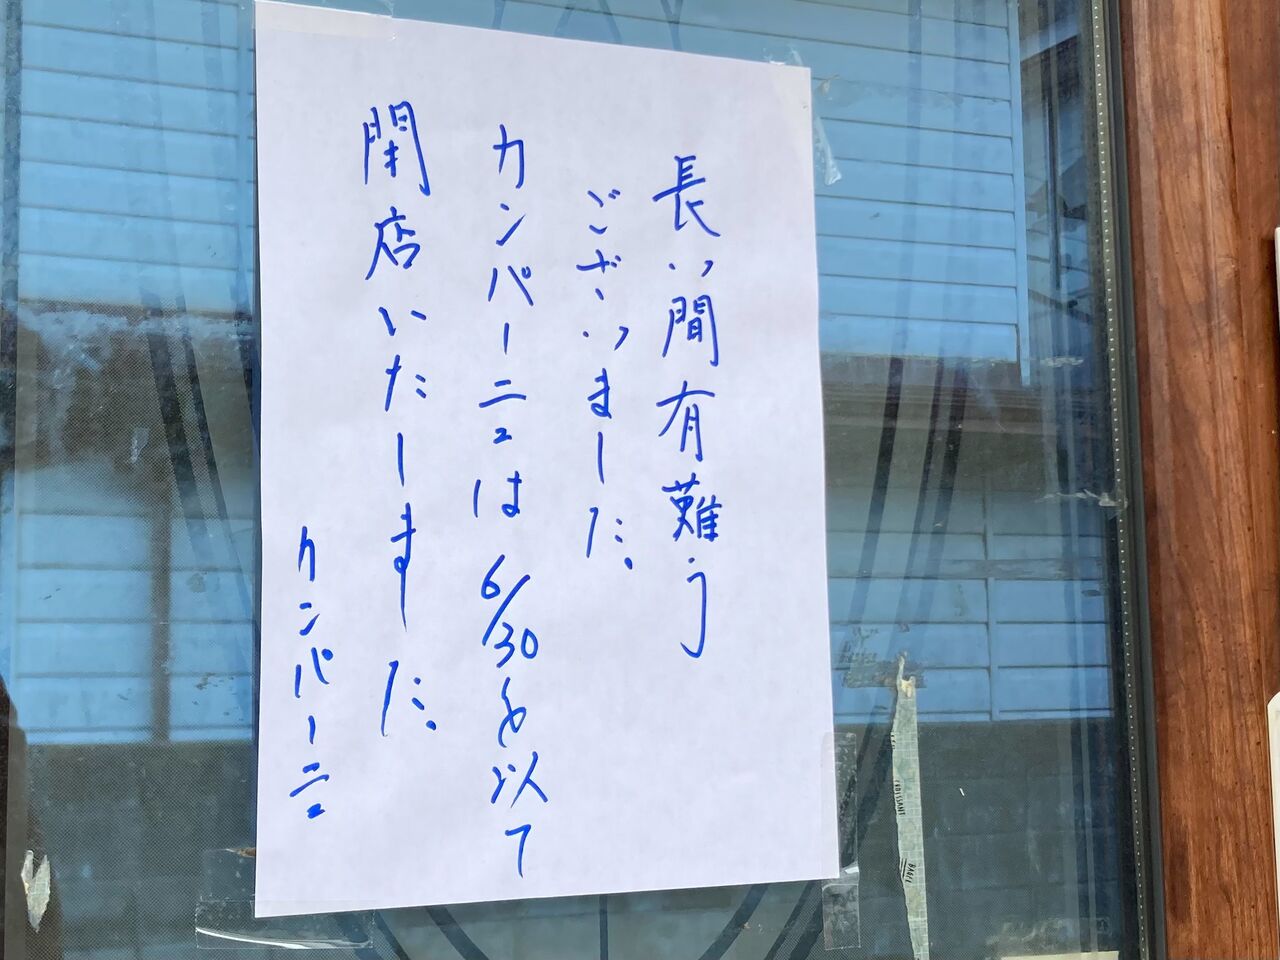 長い間有難う
ございました。
カンパーニュは6/30を以て
閉店いたしました。
カンパーニュ
CROISSANT